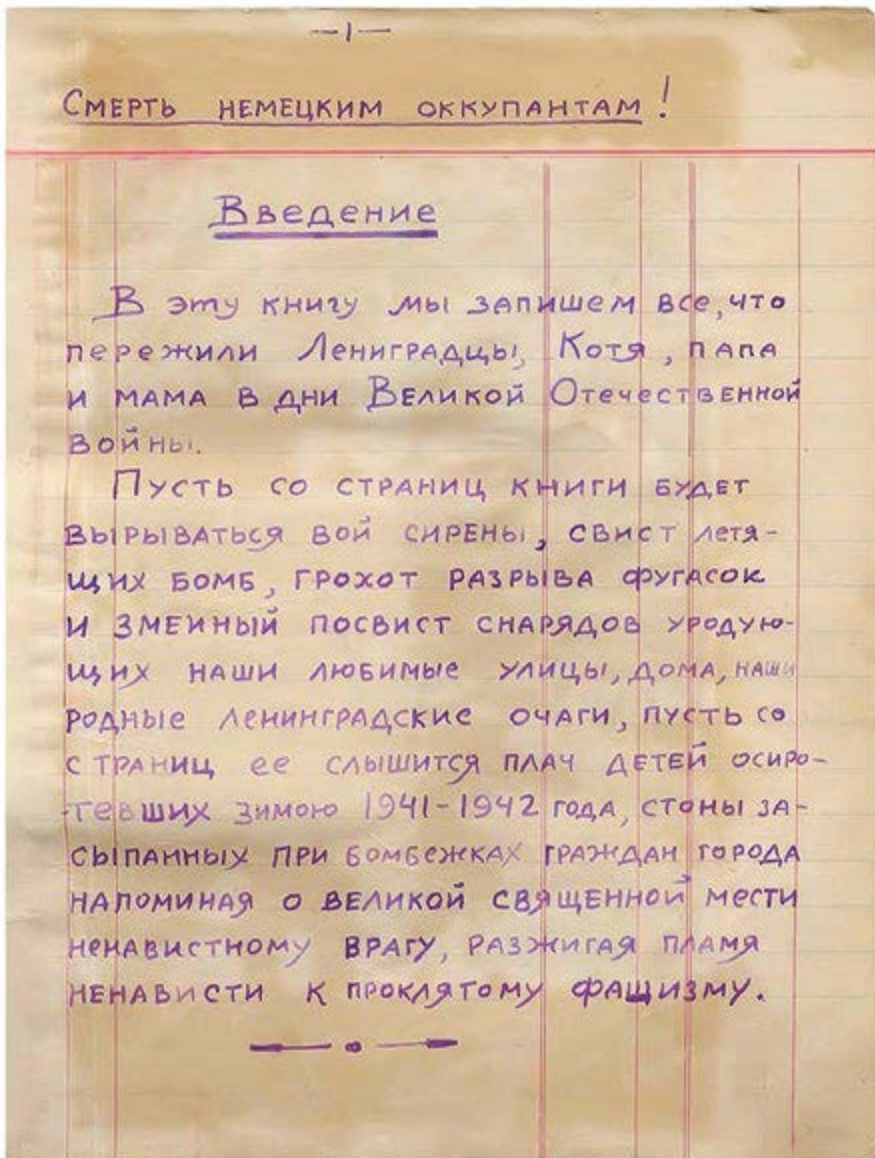 —1—
Смерть немецким оккупантам!
Введение
В эту книгу мы запишем все, что
пережили Лениградцы, Котя, папа
и мама в дни Великой Отечественной
войны.
Пусть со страниц книги будет
вырываться вой сирены, свист летя-
щих бомб, грохот разрыва фугасок
и змеиный посвист снарядов уродую-
щих наши любимые улицы, дома, наши
родные Ленинградские очаги, пусть со
страниц ее слышится плач детей осиро-
тевших зимою 1941-1942 года, стоны за-
сыпанных при бомбежках граждан города
напоминая о великой священной мести
ненавистному врагу, разжигая пламя
ненависти к проклятому фащизму.